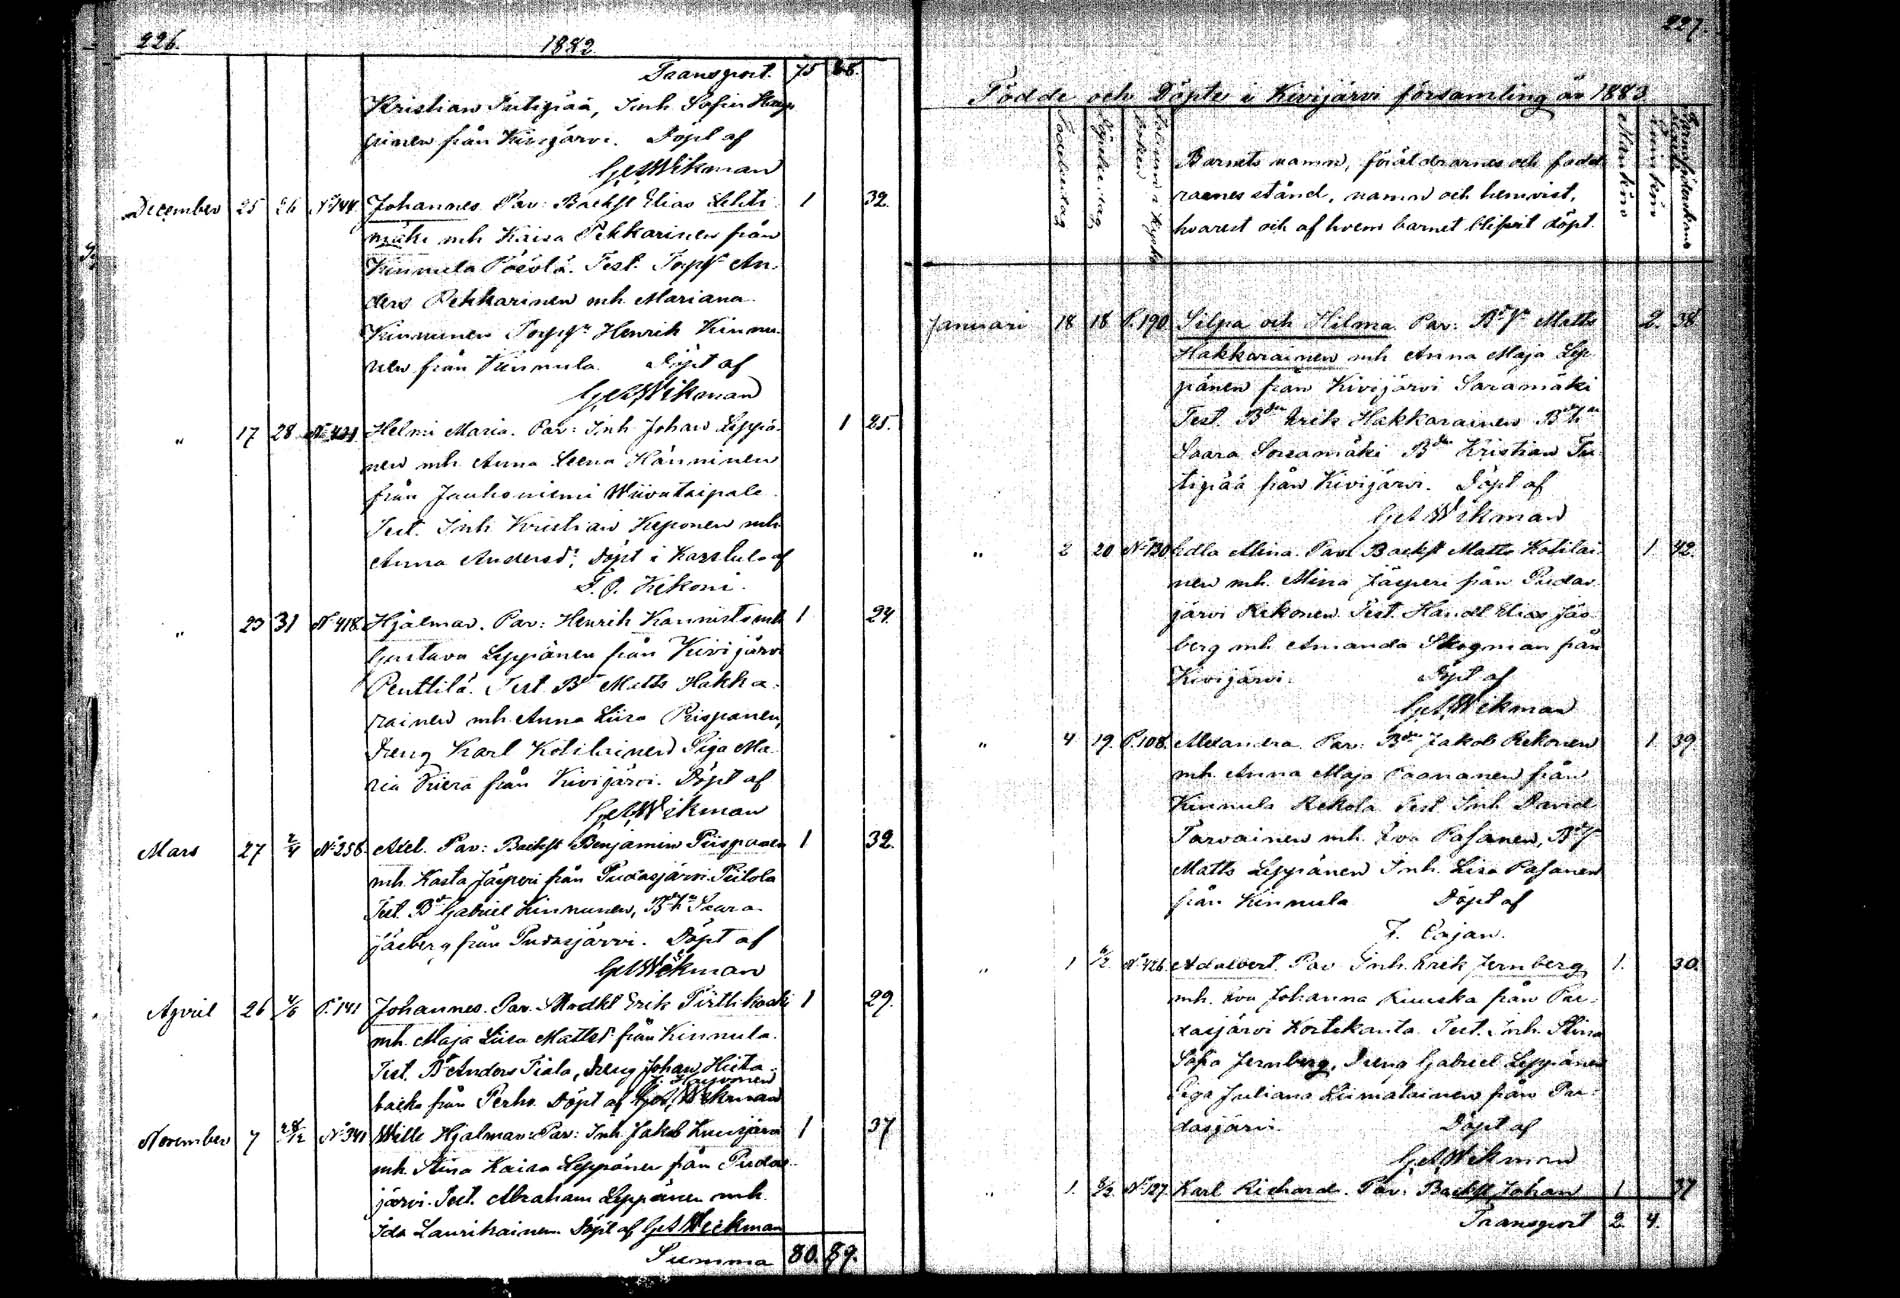 226.
1882
Transport. 75 88.
Kristian Tutipää, Inh. Sofia Kaup
pinen från Kivijärvi. Döpt af
G. A. Wikman
December 25 26 No 144 Johannes. Par: Backst Elias Lehti 1 32.
mäki mh Kaisa Pekkarinen från
Kinnula Pöëölä. Test. Torpf An-
ders Pekkarinen mh. Mariana
Kinnunen Torpgn Henrik Kinnu-
nen från Kinnula. Döpt af
G. A. Wikman
" 17 28 Helmi Maria. Par: Inh Johan Leppä- 1 25.
nen mh. Anna Leena Hänninen
från Jauhoniemi Wiivataipale.
Test. Inh Kristian Keponen mh
Anna Andersdr. Döpt i Karstula af
Kekoni.
" 23 31 No 418. Hjalmar. Par: Henrik Kannisto mh 1 24.
Gustava Leppänen från Kivijärvi
Penttilä. Test. Bdn Matts Hakka-
rainen mh. Anna Liisa Piispanen,
Dreng Karl Kotilainen Piga Ma-
ria Viera från Kivijärvi. Döpt af
G. A. Wikman
Mars 27 2/4 No 258. Axel. Par: Backst Benjamin Piispanen 1 32.
mh. Kasta Jäsperi från Pudasjärvi Piilola
Test. Bdn Gabriel Kinnunen, Bdh Saara
Jäsberg från Pudasjärvi. Döpt af
G. A. Wikman
April 26 4/6 P. 141 Johannes. Par. Modkl Erik Pirttikoski 1 29.
mh. Maja Liisa Mattsdr från Kinnula.
Test. Bdn Anders Tiala, Dreng Johan Hieta-
backa från Perho. Döpt af
November 7 28/12 No 341 Wille Hjalmar. Par: Inh. Jakob Kuusjärvi 1 37
mh. Stina Kaisa Leppänen från Pudas-
järvi. Test. Abraham Leppänen mh.
Ida Laurikainen. Döpt af G. A. Wikman
Summa 80. 89.
227.
Födde och Döpte i Kivijärvi församling år 1883
Födelsedag
Döpelsedag
Mankön
Qvinkön
Barnets namn, föräldrarnes och fadd-
rarnes stånd, namn och hemvist,
hvarest och af hvem barnet blifvit döpt.
Januari 18 18 P. 190 Silpa och Hilma. Par: Matts 2. 38.
Hakkarainen mh Anna Maja Lep-
pänen från Kivijärvi Saramäki
Test. Bdn Erik Hakkarainen Bdh
Saara Soramäki Bdn Kristian Tu-
tipää från Kivijärvi. Döpt af
G. A. Wikman
" 2 20 No 120 Edla Mina. Par. Backst Matts Kotilai- 1. 42.
nen mh. Mina Jäsperi från Pudas-
järvi Kekonen. Test. Handl Elias Jäs-
berg mh Amanda Skogman från
Kivijärvi. Döpt af
G. A. Wikman
" 4 19. P. 108. Alexandra. Par: Bdn Jakob Rekonen 1 39.
mh. Anna Maja Paananen från
Kinnula Rekola Test Inh David
Tarvainen mh. Eva Pasanen,
Matts Leppänen Inh. Lisa Pasanen
från Kinnula Döpt af
F. Cajan.
" 1 6/2 No 426. Adalvert. Par Inh. Erik Jernberg 1. 30.
mh. Eva Johanna Ruuska från Pu-
dasjärvi Kortekanta. Test. Inh. Stina
Sofia Jernberg, Dreng Gabriel Leppänen
Piga Juliana Liimatainen från Pu-
dasjärvi. Döpt af
G. A. Wikman
" 1. 3/2 No 127. Karl Richard. Par: Backst Johan 1 37
Transport 2. 4.